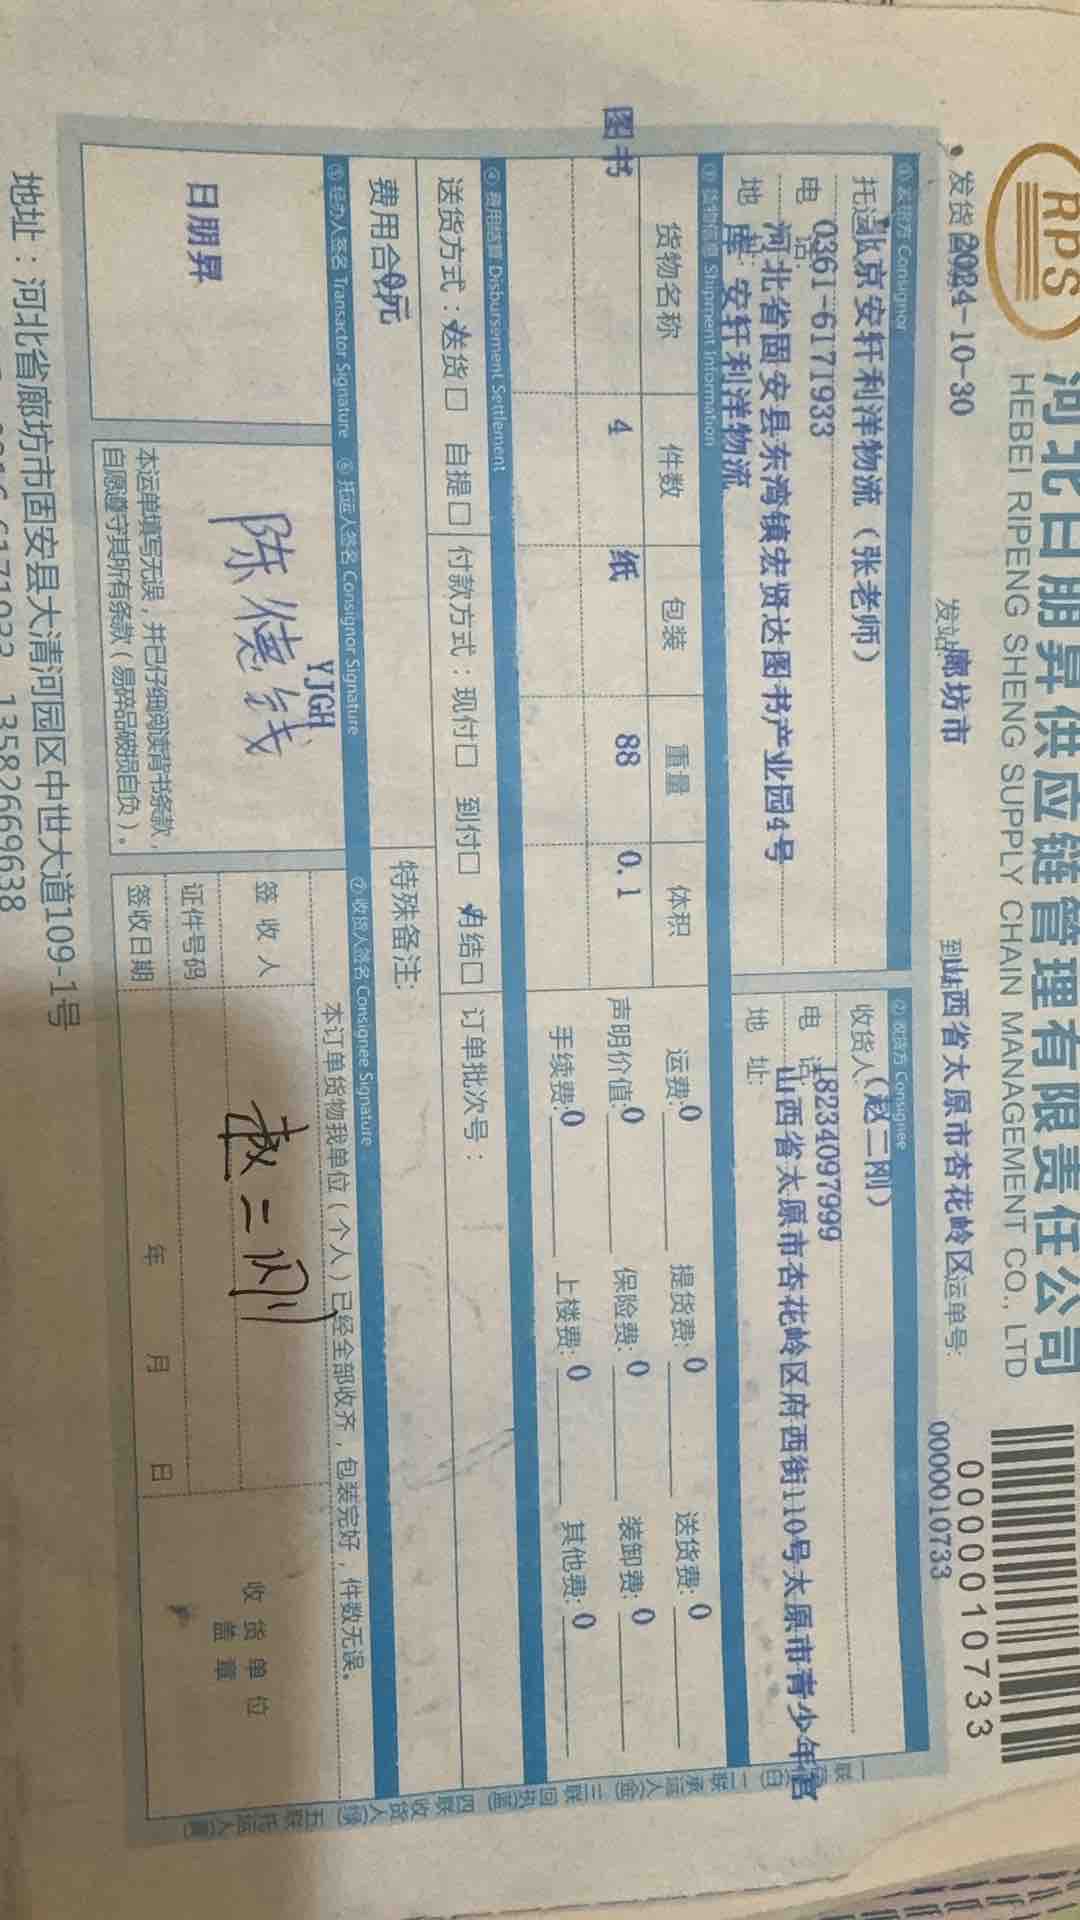 RPS
河北日朋昇供应链管理有限责任公司
HEBEI RIPENG SHENG SUPPLY CHAIN MANAGEMENT CO., LTD
0000010733
发货 2024-10-30
发站: 廊坊市
到 山西省太原市杏花岭区 运单号: 0000010733
① 发货方 Consignor
② 收货方 Consignee
托运 北京安轩利洋物流（张老师）
收货人:（赵二刚）
电话: 0361-6171933
电话: 18234097999
地 河北省固安县东湾镇宏贤达图书产业园4号
库 安轩利洋物流
地址: 山西省太原市杏花岭区府西街110号太原市青少年宫
③ 货物信息 Shipment Information
货物名称 件数 包装 重量 体积
图书 4 纸 88 0.1
运费: 0 提货费: 0 送货费: 0
声明价值: 0 保险费: 0 装卸费: 0
手续费: 0 上楼费: 0 其他费: 0
④ 费用结算 Disbursement Settlement
送货方式：送货□ 自提□ 付款方式：现付□ 到付□ 月结□ 订单批次号：
费用合计 0元
特殊备注:
⑤ 经办人签名 Transactor Signature
⑥ 托运人签名 Consignor Signature
⑦ 收货人签名 Consignee Signature
日朋昇
YJGH
陈德钱
本运单填写无误，并已仔细阅读背书条款，
自愿遵守其所有条款（易碎品破损自负）。
本订单货物我单位（个人）已经全部收齐，包装完好，件数无误。
签收人 赵二刚
证件号码
签收日期 年 月 日
收货单位
盖章
地址：河北省廊坊市固安县大清河园区中世大道109-1号
6171933 13582669638